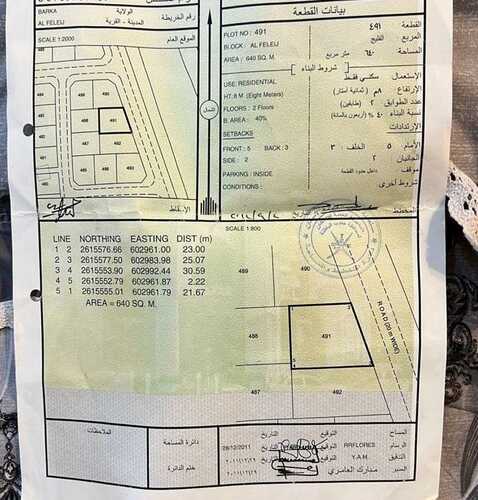 BARKA
الولاية
رقم الخريطة
AL FELEIJ
المدينة - القرية
SCALE 1:2000
الموقع العام
491
490
489
488
487
492
الإسقاط
الشمال
بيانات القطعة
PLOT NO : 491
القطعة ٤٩١
BLOCK : AL FELEIJ
المربع الفليج
AREA : 640 SQ. M.
المساحة ٦٤٠ متر مربع
شروط البناء
USE: RESIDENTIAL
الإستعمال سكني فقط
HT.:8 M (Eight Meters)
الإرتفاع ٨م (ثمانية أمتار)
FLOORS : 2 Floors
عدد الطوابق ٢ (طابقين)
B. AREA : 40%
نسبة البناء ٤٠ % (أربعون بالمائة)
SETBACKS
الإرتدادات
FRONT : 5 BACK : 3
الأمام ٥ الخلف ٣
SIDE : 2
الجانبان ٢
PARKING : INSIDE
موقف داخل حدود القطعة
CONDITIONS :
شروط أخرى
المخطط
التاريخ
SCALE 1:800
LINE NORTHING EASTING DIST (m)
1 2 2615576.66 602961.00 23.00
2 3 2615577.50 602983.98 25.07
3 4 2615553.90 602992.44 30.59
4 5 2615552.79 602961.87 2.22
5 1 2615555.01 602961.79 21.67
AREA = 640 SQ. M.
489
490
488
491
487
492
ROAD (20 m WIDE)
الملاحظات
دائرة المساحة
ختم الدائرة
المساح
التوقيع
التاريخ
28/12/2011
الرسام
RRFLORES
التوقيع
التاريخ
التدقيق
Y.A.M.
التوقيع
التاريخ
٢٠١١/١٢/٢٩
المدير
مبارك العامري
التوقيع
التاريخ